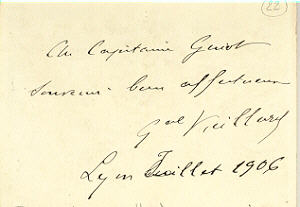 22
Au Capitaine
Souvenir bien affectueux
Gal Vieillard
Lyon Juillet 1906